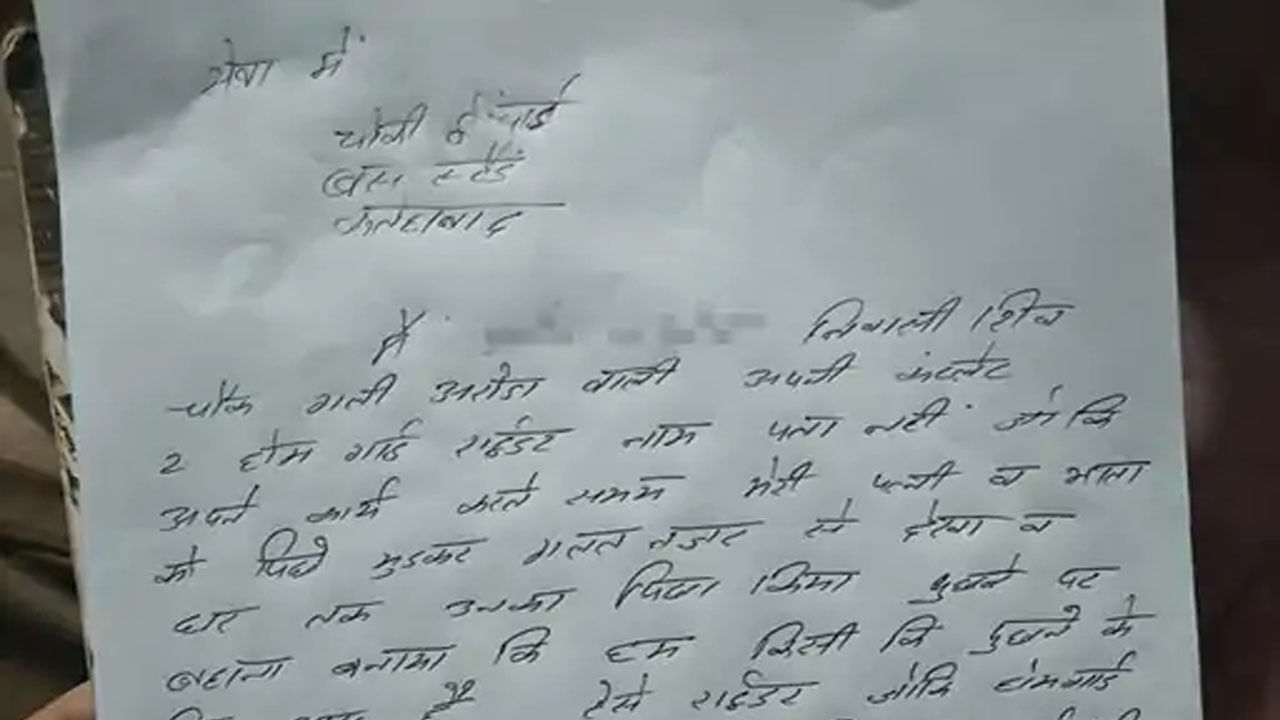 सेवा में
चौंकी ईन्चार्ज
बस स्टैंड
फतेहाबाद
मैं निवासी शिव
चौक गली अरोडा वाली अपनी कंप्लेंट
2 होम गार्ड राईडर नाम पता नहीं जो कि
अपने कार्य करते समय मेरी पत्नी व माता
को पिछे मुडकर गलत नजर से देखा व
घर तक उनका पिछा किया पुछने पर
बहाना बनाया कि हम किसी कि पुछने के
है ऐसे राईडर जोकि होमगार्ड